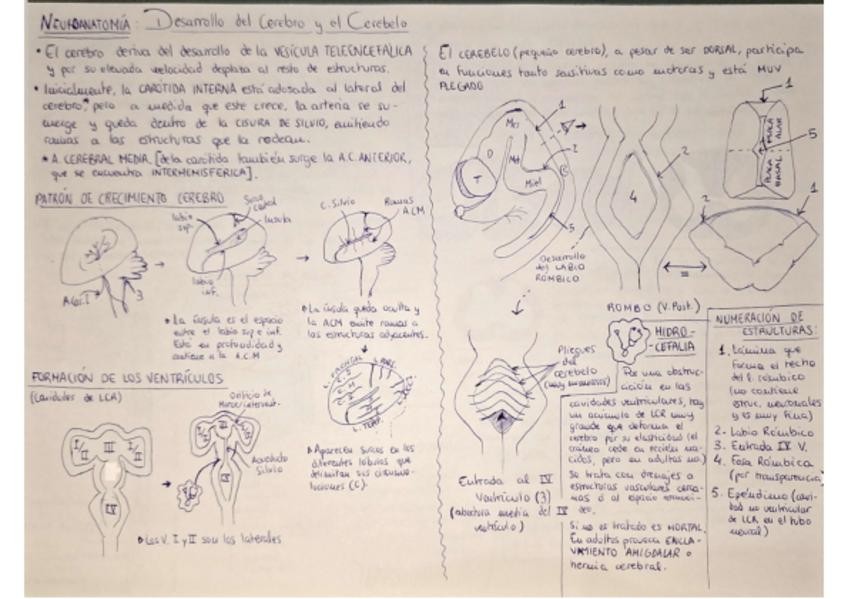 NEUROANATOMÍA: Desarrollo del Cerebro y el Cerebelo
• El cerebro deriva del desarrollo de la VESÍCULA TELENCEFÁLICA
y por su elevada velocidad desplaza al resto de estructuras.
• Inicialmente, la CARÓTIDA INTERNA está adosada al lateral del
cerebro*, pero a medida que este crece, la arteria se su-
merge y queda dentro de la CISURA DE SILVIO, emitiendo
ramas a las estructuras que la rodean.
* A. CEREBRAL MEDIA [de la carótida también surge la A.C. ANTERIOR,
que se encuentra INTERHEMISFÉRICA].
PATRÓN DE CRECIMIENTO CEREBRO
labio
sup.
Surco
Ínsula
labio
inf.
3
C. Silvio
Ramas
ACM
La ínsula es el espacio
entre el labio sup e inf.
Está en profundidad y
contiene a la A.C.M
La ínsula queda oculta y
la ACM emite ramas a
las estructuras adyacentes.
L. FRONTAL
Aparecen surcos en los
diferentes lóbulos que
delimitan sus circunvo-
luciones (C).
FORMACIÓN DE LOS VENTRÍCULOS
(Cavidades de LCR)
I/II
III
I/II
IV
Orificio de
Acueducto
Silvio
III
IV
Los V. I y II son los laterales
El CEREBELO (pequeño cerebro), a pesar de ser DORSAL, participa
en funciones tanto sensitivas como motoras y está MUY
PLEGADO
1
D
T
2
5
Desarrollo
del LABIO
RÓMBICO
4
2
ROMBO (V. Post.)
1
PLACA
ALAR
PLACA
BASAL
5
2
1
Pliegues
del
cerebelo
Entrada al IV
Ventrículo (3)
(abertura media del IV
ventrículo)
HIDRO-
CEFALIA
Por una obstruc-
ción en las
cavidades ventriculares, hay
un acúmulo de LCR muy
grande que deforma el
cerebro por su elasticidad (el
cráneo cede en recién na-
cidos, pero en adultos no)
Se trata con drenajes a
estructuras vasculares cerca-
nas o al espacio
Si no es tratado es MORTAL.
En adultos provoca ENCLA-
VAMIENTO AMIGDALAR o
hernia cerebral.
NUMERACIÓN DE
ESTRUCTURAS:
1. Lámina que
forma el techo
del E. rómbico
(no contiene
estruc. neuronales
y es muy fina)
2- Labio Rómbico
3- Entrada IV V.
4. Fosa Rómbica
(por transparencia)
5. Epéndimo (cavi-
dad no ventricular
de LCR en el tubo
neural)